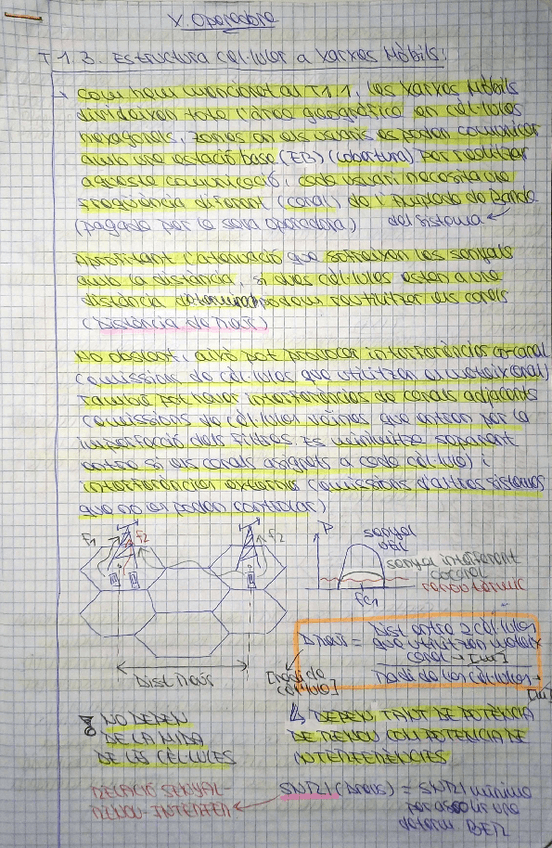 X. Operadora
T 1.3. Estructura cel·lular a xarxes Mòbils:
Com hem mencionat al T1.1, les xarxes Mòbils
divideixen tota l'àrea geogràfica en cèl·lules
hexagonals, zones on els usuaris es poden comunicar
amb una estació base (EB) (cobertura) Per realitzar
aquesta comunicació, cada usuari necessita una
freqüència diferent (canal) de l'Amplada de Banda
(pagada per la seva operadora) del sistema
Aprofitant l'atenuació que sofreixen les senyals
amb la distància, si dues cèl·lules estan a una
distància podem reutilitzar els canals
(Distància de Reús)
No obstant, això pot provocar interferències co-canal
(emissions de cèl·lules que utilitzen el mateix canal)
També pot haver interferències de canals adjacents
(emissions de cèl·lules veïnes que entren per la
imperfecció dels filtres. Es minimitza separant
entre si els canals assignats a cada cèl·lula) i
interferències externes (emissions d'altres sistemes
que no es poden controlar)
f1 f2 f2
P
senyal
útil
senyal interferent
cocanal
fc1
Dist Reús
Dreús = Dist entre 2 cèl·lules
que utilitzen mateix
canal → [m]
Radi de les cèl·lules → [m]
[radi de
cèl·lula]
NO DEPEN
DE LA MIDA
DE LES CÈL·LULES
DEPEN TANT DE POTÈNCIA
DE RENOU COM POTENCIA DE
INTERFERÈNCIES
RELACIÓ SENYAL-
RENOU-INTERFEN
SNRI (Dreús) = SNRI mínima
per assolir una
determ BER